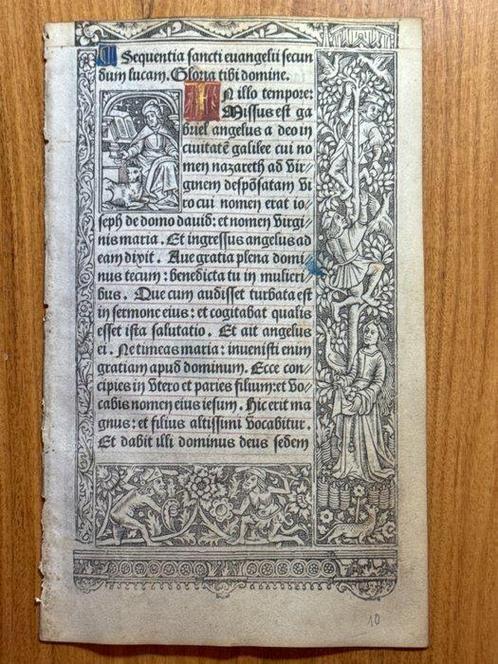 Sequentia sancti euangelii secun
dum lucam. Gloria tibi domine.
IN illo tempore:
Missus est ga
briel angelus a deo in
ciuitatē galilee cui no
men nazareth ad vir
ginem despōsatam vi
ro cui nomen erat io⸗
seph de domo dauid: et nomen virgi⸗
nis maria. Et ingressus angelus ad
eam dixit. Aue gratia plena domi⸗
nus tecum: benedicta tu in mulieri
bus. Que cum audisset turbata est
in sermone eius: et cogitabat qualis
esset ista salutatio. Et ait angelus
ei. Ne timeas maria: inuenisti enim
gratiam apud dominum. Ecce con⸗
cipies in vtero et paries filium: et vo⸗
cabis nomen eius iesum. Hic erit ma
gnus: et filius altissimi vocabitur.
Et dabit illi dominus deus sedem
10